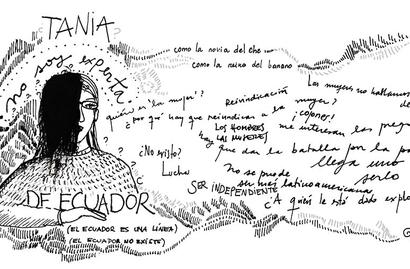 TANIA
no soy experta
como la novia del che...
como la reina del banano
Las mujeres no hablamos
de
quién es "la mujer"?
Reivindicación
¿por qué hay que reivindicar a la mujer?
¡cojones!
LOS HOMBRES
hay LAS MUJERES
me interesan las preg
que dar la batalla por la pa
¿No existo?
Lucho
llega uno
no se puede serlo
SER INDEPENDIENTE
ser mej latinoamericana
¿A quién le está dado explo
DE ECUADOR
(EL ECUADOR ES UNA LÍNEA)
(EL ECUADOR NO EXISTE)